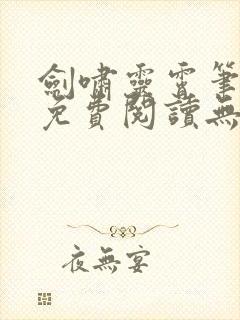 劍嘯靈霄筆
免費閱讀無
夜無宴